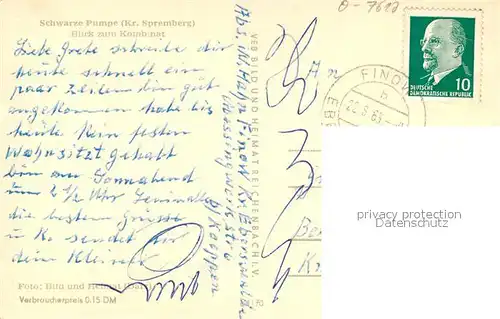 Schwarze Pumpe (Kr. Spremberg)
Blick zum Kombinat
Liebe Grete schreibe dir
heute schnell ein
paar Zeilen bin gut
angekommen habe bis
heute Kein festen
Wohnsitz gehabt
bin am Sonnabend
um 2 1/2 Uhr
die besten Grüsse
u. K. sendet dir
dein Kleiner
Foto: Bild und Heimat
Verbraucherpreis 0.15 DM
Abs. W. Hahn Finow Kr. Eberswalde
Messingwerkstr.
b/ Koeppen
VEB BILD UND HEIMAT REICHENBACH I. V.
O-7612
FINOW
b
DEUTSCHE
DEMOKRATISCHE REPUBLIK
10
privacy protection
Datenschutz